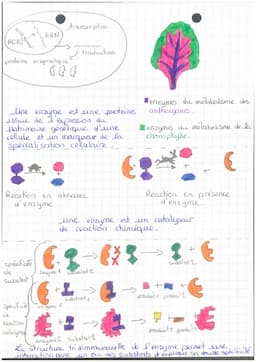 transcription
ADN
ARN
traduction
protéine enzymatique
enzymes du métabolisme des
anthocyanes.
enzymes du métabolisme de la
chlorophylle.
Une enzyme est une protéine
issue de l'expression du
patrimoine génétique d'une
cellule et un marqueur de la
spécialisation cellulaire.
Réaction en absence
d'enzyme
Réaction en présence
d'enzyme.
Une enzyme est un catalyseur
de réaction chimique.
spécificité
de
substrat
enzyme 1
substrat 1
substrat 2
spécificité
de
réaction
catalysée
enzyme 1
substrat 1
produit 1
produit 2
enzyme 2
substrat 1
produit 3
produit 4
La structure tridimensionnelle de l'enzyme permet une
interaction avec un ou des substrats